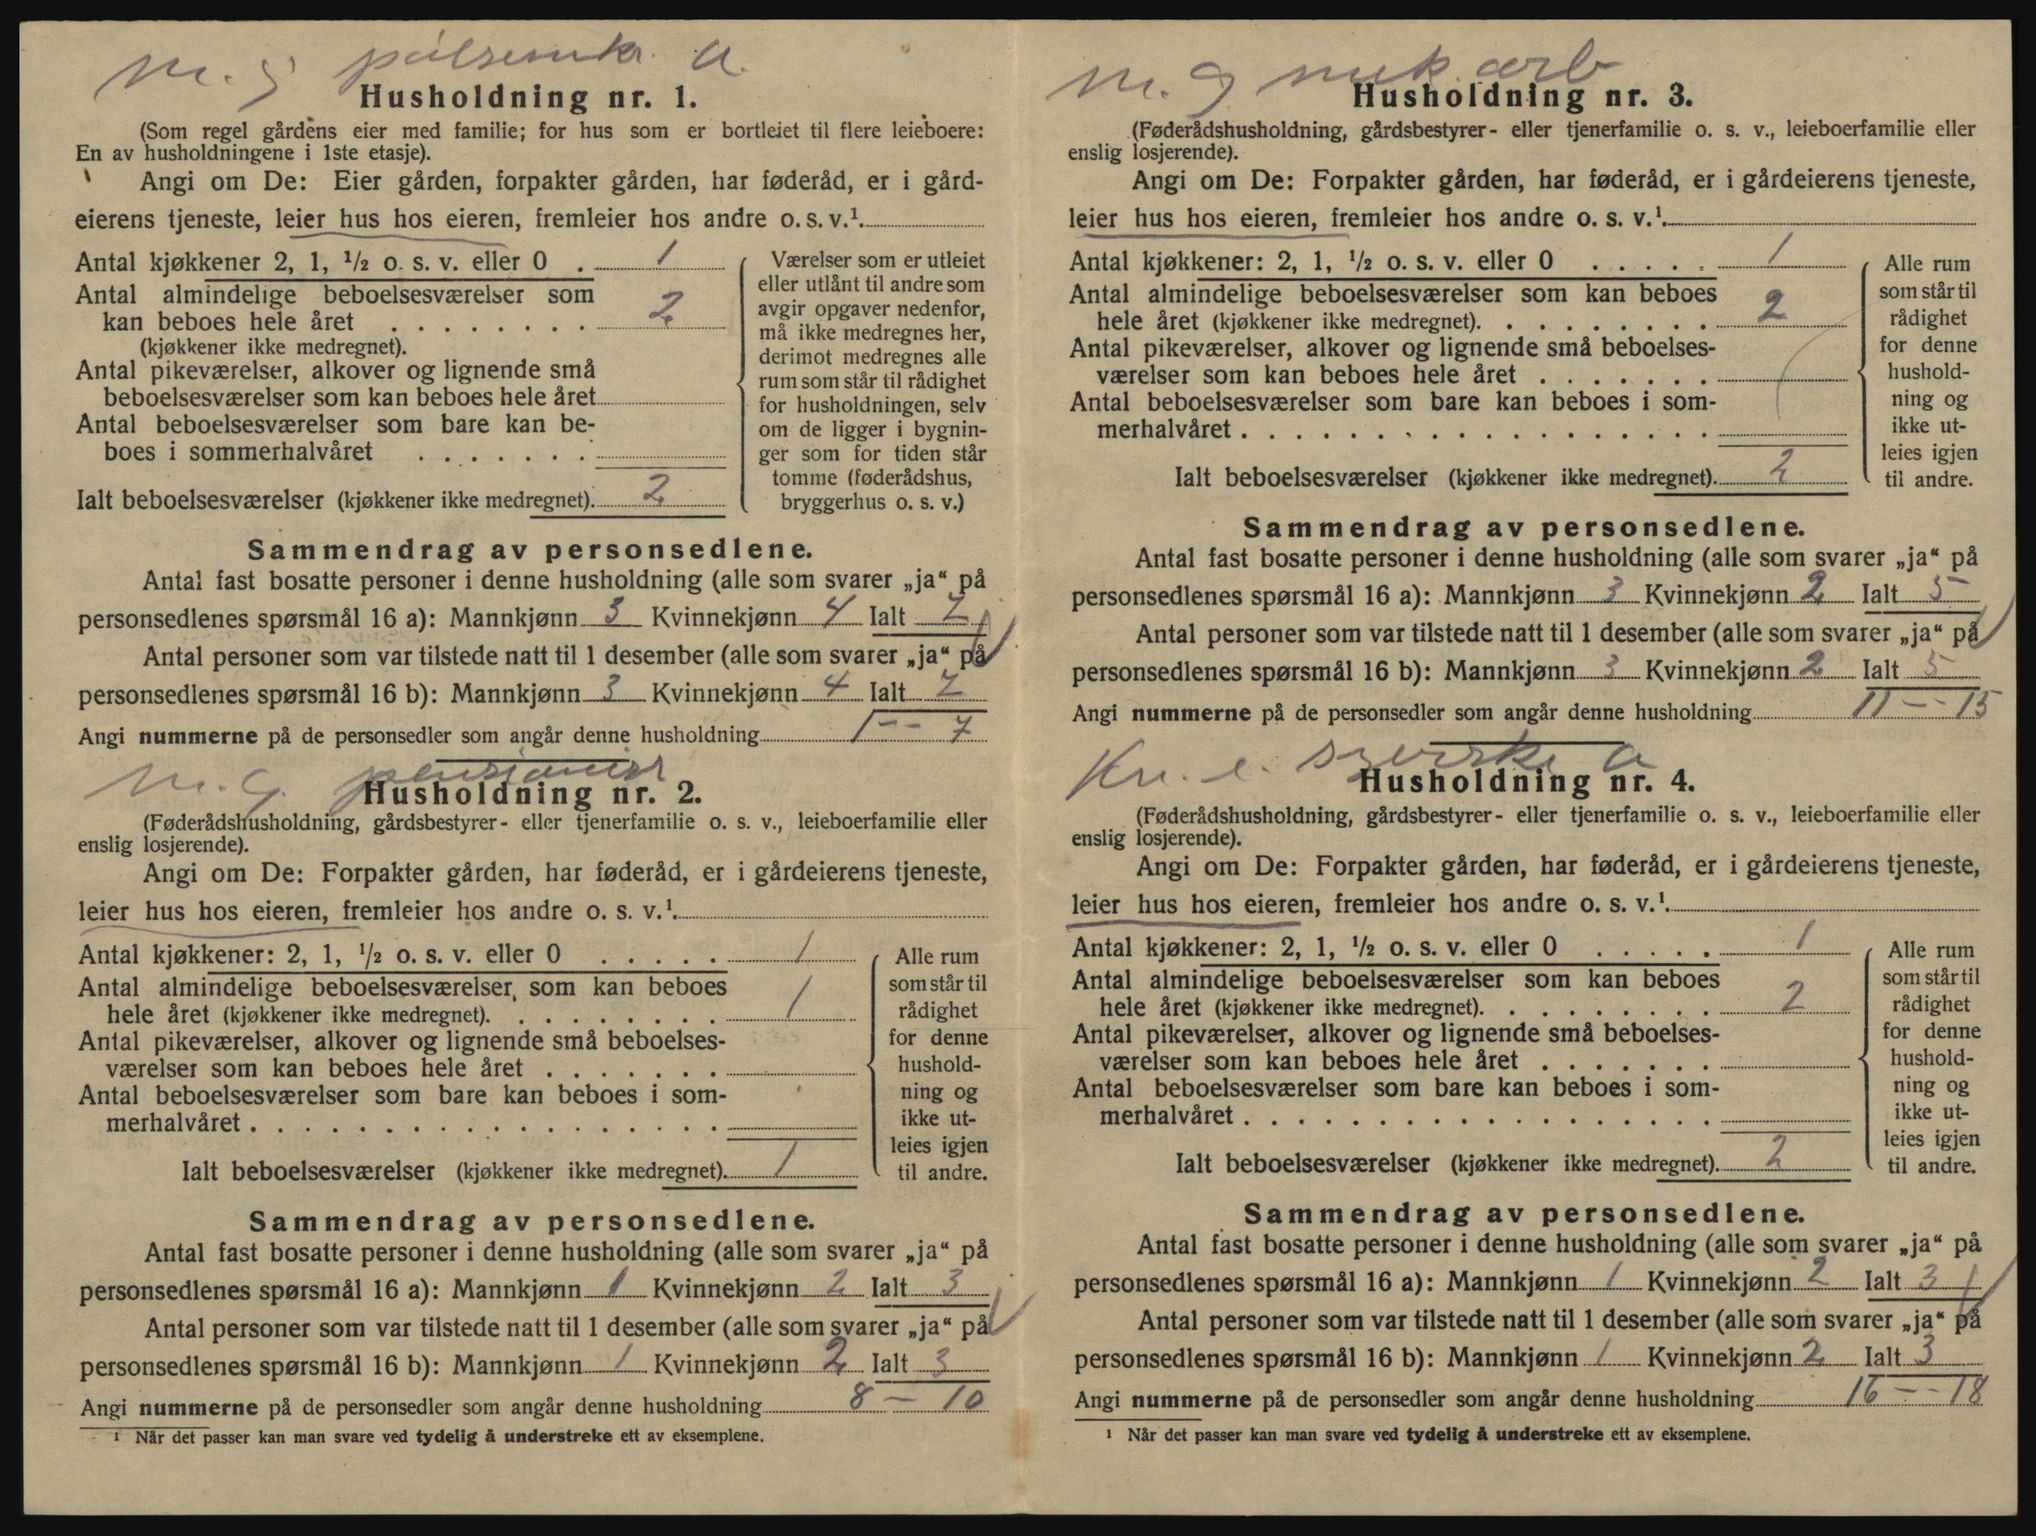 m. g pølsemkr. a.
Husholdning nr. 1.
(Som regel gårdens eier med familie; for hus som er bortleiet til flere leieboere:
En av husholdningene i 1ste etasje).
Angi om De: Eier gården, forpakter gården, har føderåd, er i gård-
eierens tjeneste, leier hus hos eieren, fremleier hos andre o. s. v.¹.
Antal kjøkkener 2, 1, ½ o. s. v. eller 0 . 1
Antal almindelige beboelsesværelser som
kan beboes hele året . . . . . . . . 2
(kjøkkener ikke medregnet).
Antal pikeværelser, alkover og lignende små
beboelsesværelser som kan beboes hele året
Antal beboelsesværelser som bare kan be-
boes i sommerhalvåret . . . . . . .
Ialt beboelsesværelser (kjøkkener ikke medregnet). 2
Værelser som er utleiet
eller utlånt til andre som
avgir opgaver nedenfor,
må ikke medregnes her,
derimot medregnes alle
rum som står til rådighet
for husholdningen, selv
om de ligger i bygnin-
ger som for tiden står
tomme (føderådshus,
bryggerhus o. s. v.)
Sammendrag av personsedlene.
Antal fast bosatte personer i denne husholdning (alle som svarer „ja“ på
personsedlenes spørsmål 16 a): Mannkjønn 3 Kvinnekjønn 4 Ialt 7
Antal personer som var tilstede natt til 1 desember (alle som svarer „ja“ på
personsedlenes spørsmål 16 b): Mannkjønn 3 Kvinnekjønn 4 Ialt 7
Angi nummerne på de personsedler som angår denne husholdning 1 -- 7
m. g. pensjonist
Husholdning nr. 2.
(Føderådshusholdning, gårdsbestyrer- eller tjenerfamilie o. s. v., leieboerfamilie eller
enslig losjerende).
Angi om De: Forpakter gården, har føderåd, er i gårdeierens tjeneste,
leier hus hos eieren, fremleier hos andre o. s. v.¹.
Antal kjøkkener: 2, 1, ½ o. s. v. eller 0 . . . . . 1
Antal almindelige beboelsesværelser som kan beboes
hele året (kjøkkener ikke medregnet). . . . . . . . . 1
Antal pikeværelser, alkover og lignende små beboelses-
værelser som kan beboes hele året . . . . . . .
Antal beboelsesværelser som bare kan beboes i som-
merhalvåret . . . . . . . . . . . . . . . . . .
Ialt beboelsesværelser (kjøkkener ikke medregnet). 1
Alle rum
som står til
rådighet
for denne
hushold-
ning og
ikke ut-
leies igjen
til andre.
Sammendrag av personsedlene.
Antal fast bosatte personer i denne husholdning (alle som svarer „ja“ på
personsedlenes spørsmål 16 a): Mannkjønn 1 Kvinnekjønn 2 Ialt 3
Antal personer som var tilstede natt til 1 desember (alle som svarer „ja“ på
personsedlenes spørsmål 16 b): Mannkjønn 1 Kvinnekjønn 2 Ialt 3
Angi nummerne på de personsedler som angår denne husholdning 8 — 10
¹ Når det passer kan man svare ved tydelig å understreke ett av eksemplene.
m. g mek. arb
Husholdning nr. 3.
(Føderådshusholdning, gårdsbestyrer- eller tjenerfamilie o. s. v., leieboerfamilie eller
enslig losjerende).
Angi om De: Forpakter gården, har føderåd, er i gårdeierens tjeneste,
leier hus hos eieren, fremleier hos andre o. s. v.¹.
Antal kjøkkener: 2, 1, ½ o. s. v. eller 0 . . . . . 1
Antal almindelige beboelsesværelser som kan beboes
hele året (kjøkkener ikke medregnet). . . . . . . . . 2
Antal pikeværelser, alkover og lignende små beboelses-
værelser som kan beboes hele året . . . . . . .
Antal beboelsesværelser som bare kan beboes i som-
merhalvåret . . . . . . . . . . . . . . . . . .
Ialt beboelsesværelser (kjøkkener ikke medregnet). 2
Alle rum
som står til
rådighet
for denne
hushold-
ning og
ikke ut-
leies igjen
til andre.
Sammendrag av personsedlene.
Antal fast bosatte personer i denne husholdning (alle som svarer „ja“ på
personsedlenes spørsmål 16 a): Mannkjønn 3 Kvinnekjønn 2 Ialt 5
Antal personer som var tilstede natt til 1 desember (alle som svarer „ja“ på
personsedlenes spørsmål 16 b): Mannkjønn 3 Kvinnekjønn 2 Ialt 5
Angi nummerne på de personsedler som angår denne husholdning 11 -- 15
Kv. e. a
Husholdning nr. 4.
(Føderådshusholdning, gårdsbestyrer- eller tjenerfamilie o. s. v., leieboerfamilie eller
enslig losjerende).
Angi om De: Forpakter gården, har føderåd, er i gårdeierens tjeneste,
leier hus hos eieren, fremleier hos andre o. s. v.¹.
Antal kjøkkener: 2, 1, ½ o. s. v. eller 0 . . . . . 1
Antal almindelige beboelsesværelser som kan beboes
hele året (kjøkkener ikke medregnet). . . . . . . . . 2
Antal pikeværelser, alkover og lignende små beboelses-
værelser som kan beboes hele året . . . . . . .
Antal beboelsesværelser som bare kan beboes i som-
merhalvåret . . . . . . . . . . . . . . . . . .
Ialt beboelsesværelser (kjøkkener ikke medregnet). 2
Alle rum
som står til
rådighet
for denne
hushold-
ning og
ikke ut-
leies igjen
til andre.
Sammendrag av personsedlene.
Antal fast bosatte personer i denne husholdning (alle som svarer „ja“ på
personsedlenes spørsmål 16 a): Mannkjønn 1 Kvinnekjønn 2 Ialt 3
Antal personer som var tilstede natt til 1 desember (alle som svarer „ja“ på
personsedlenes spørsmål 16 b): Mannkjønn 1 Kvinnekjønn 2 Ialt 3
Angi nummerne på de personsedler som angår denne husholdning 16 -- 18
¹ Når det passer kan man svare ved tydelig å understreke ett av eksemplene.